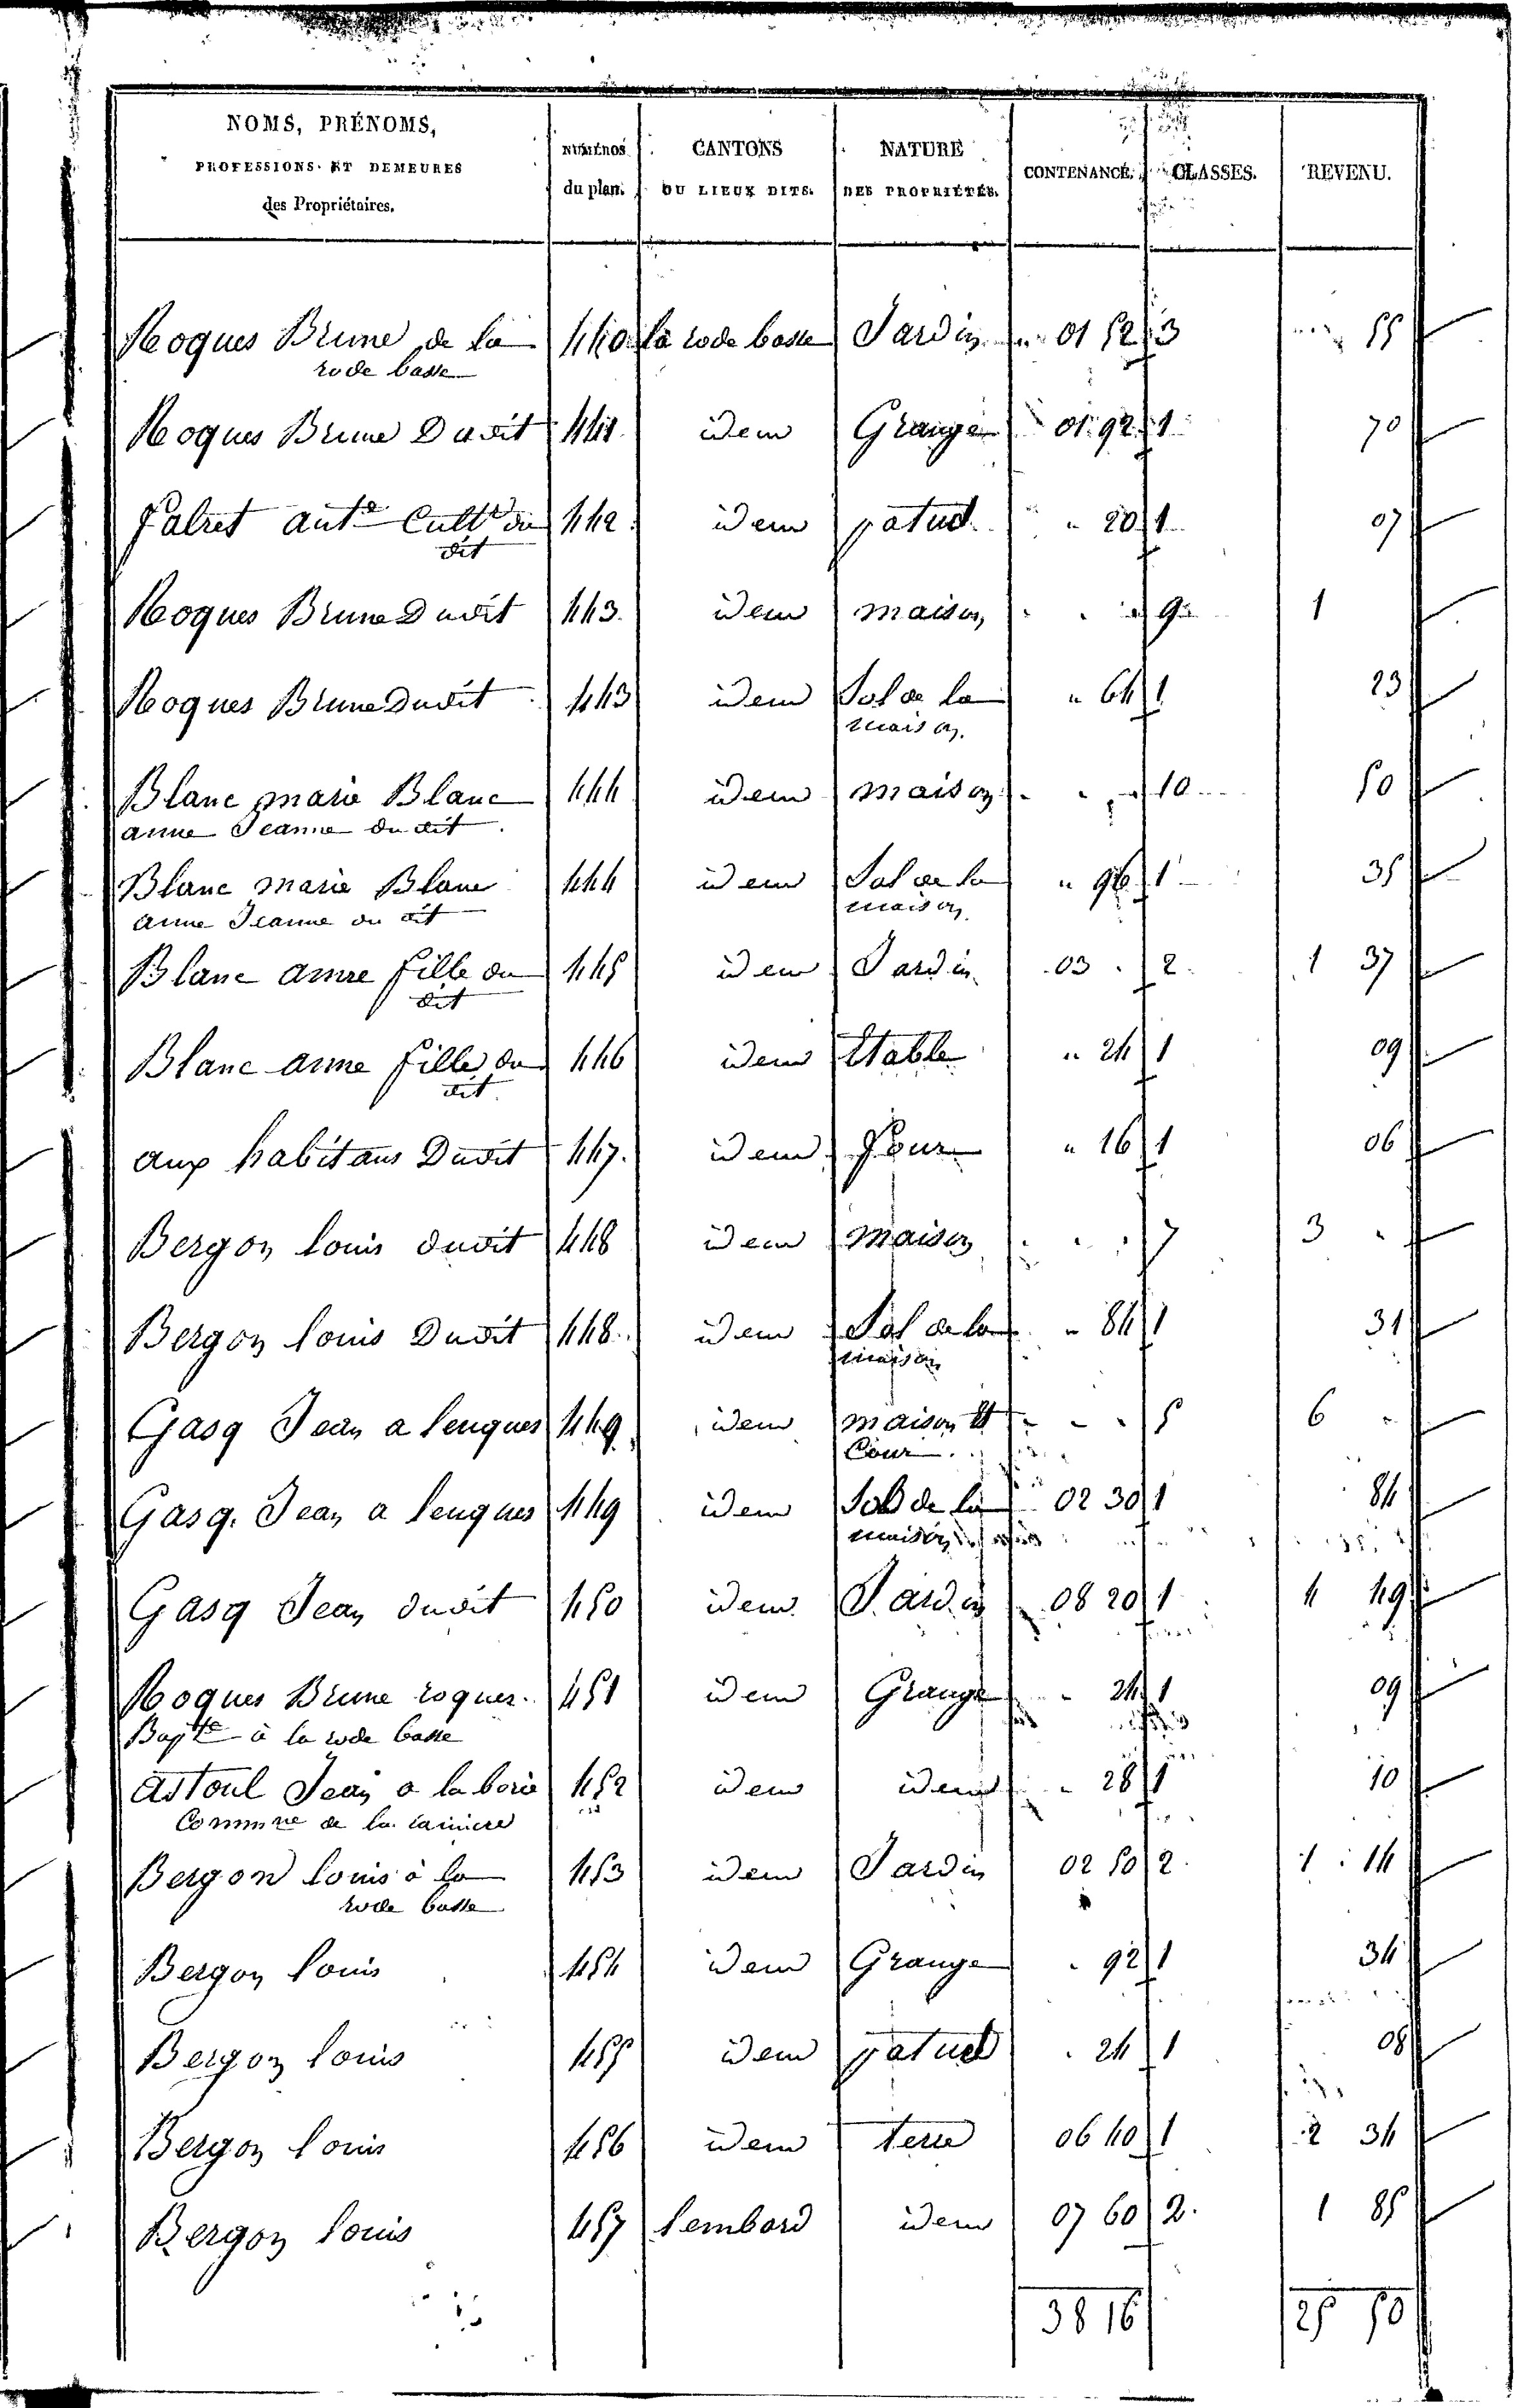 NOMS, PRÉNOMS,
PROFESSIONS ET DEMEURES
des Propriétaires.
NUMÉROS
du plan.
CANTONS
OU LIEUX DITS.
NATURE
DES PROPRIÉTÉS.
CONTENANCE.
CLASSES.
REVENU.
Roques Brune de la 440 la rode basse Jardin " 01 52 3 " 55
rode basse
Roques Brune Dudit 441 idem Grange 01 92 1 70
falret ante Cultr du 442 idem patud " 20 1 07
dit
Roques Brune Dudit 443 idem maison " " " 9 1
Roques Brune Dudit 443 idem Sol de la " 64 1 23
maison
Blanc marie Blanc 444 idem maison " " " 10 50
anne Jeanne du dit
Blanc marie Blanc 444 idem Sol de la " 96 1 35
anne Jeanne du dit maison
Blanc anne fille du 445 idem Jardin 03 " 2 1 37
dit
Blanc anne fille du 446 idem Etable " 24 1 09
dit
aux habitans Dudit 447 idem four " 16 1 06
Bergon louis dudit 448 idem maison " " " 7 3 "
Bergon louis Dudit 448 idem Sol de la " 84 1 31
maison
Gasq Jean a lenques 449 idem maison et " " " 5 6 "
Cour
Gasq Jean a lenques 449 idem Sol de la 02 30 1 84
maison
Gasq Jean dudit 450 idem Jardin 08 20 1 4 49
Roques Brune roques 451 idem Grange " 24 1 09
Bapte à la rode basse
astoul Jean a la borie 452 idem idem " 28 1 10
Commune de la
Bergon louis à la 453 idem Jardin 02 50 2 1 14
rode basse
Bergon louis 454 idem Grange " 92 1 34
Bergon louis 455 idem patud " 24 1 08
Bergon louis 456 idem terre 06 40 1 2 34
Bergon louis 457 lembord idem 07 60 2 1 85
38 16 25 50